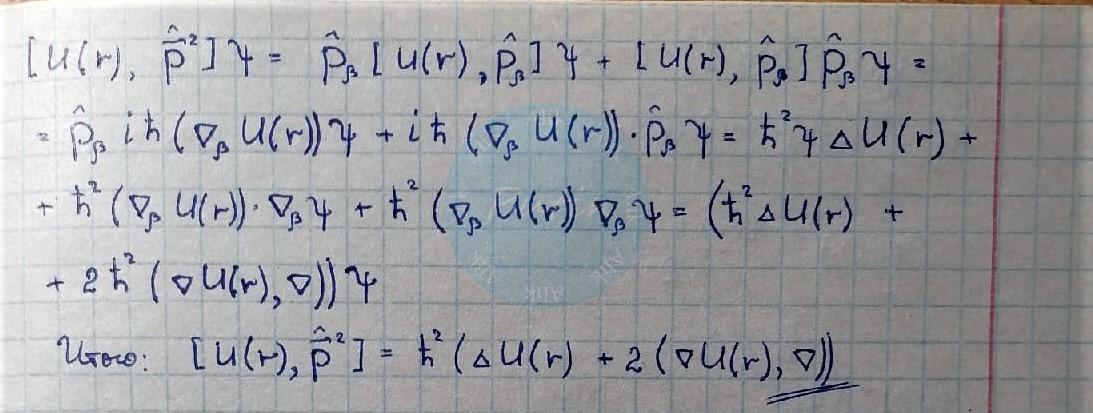 [U(r), p̂²]ψ = p̂_β [U(r), p̂_β]ψ + [U(r), p̂_β] p̂_β ψ =
= p̂_β iħ (∇_β U(r))ψ + iħ (∇_β U(r))·p̂_β ψ = ħ²ψ △U(r) +
+ ħ² (∇_β U(r))·∇_β ψ + ħ² (∇_β U(r)) ∇_β ψ = (ħ² △U(r) +
+ 2ħ² (∇U(r), ∇))ψ
Итого: [U(r), p̂²] = ħ² (△U(r) + 2(∇U(r), ∇))